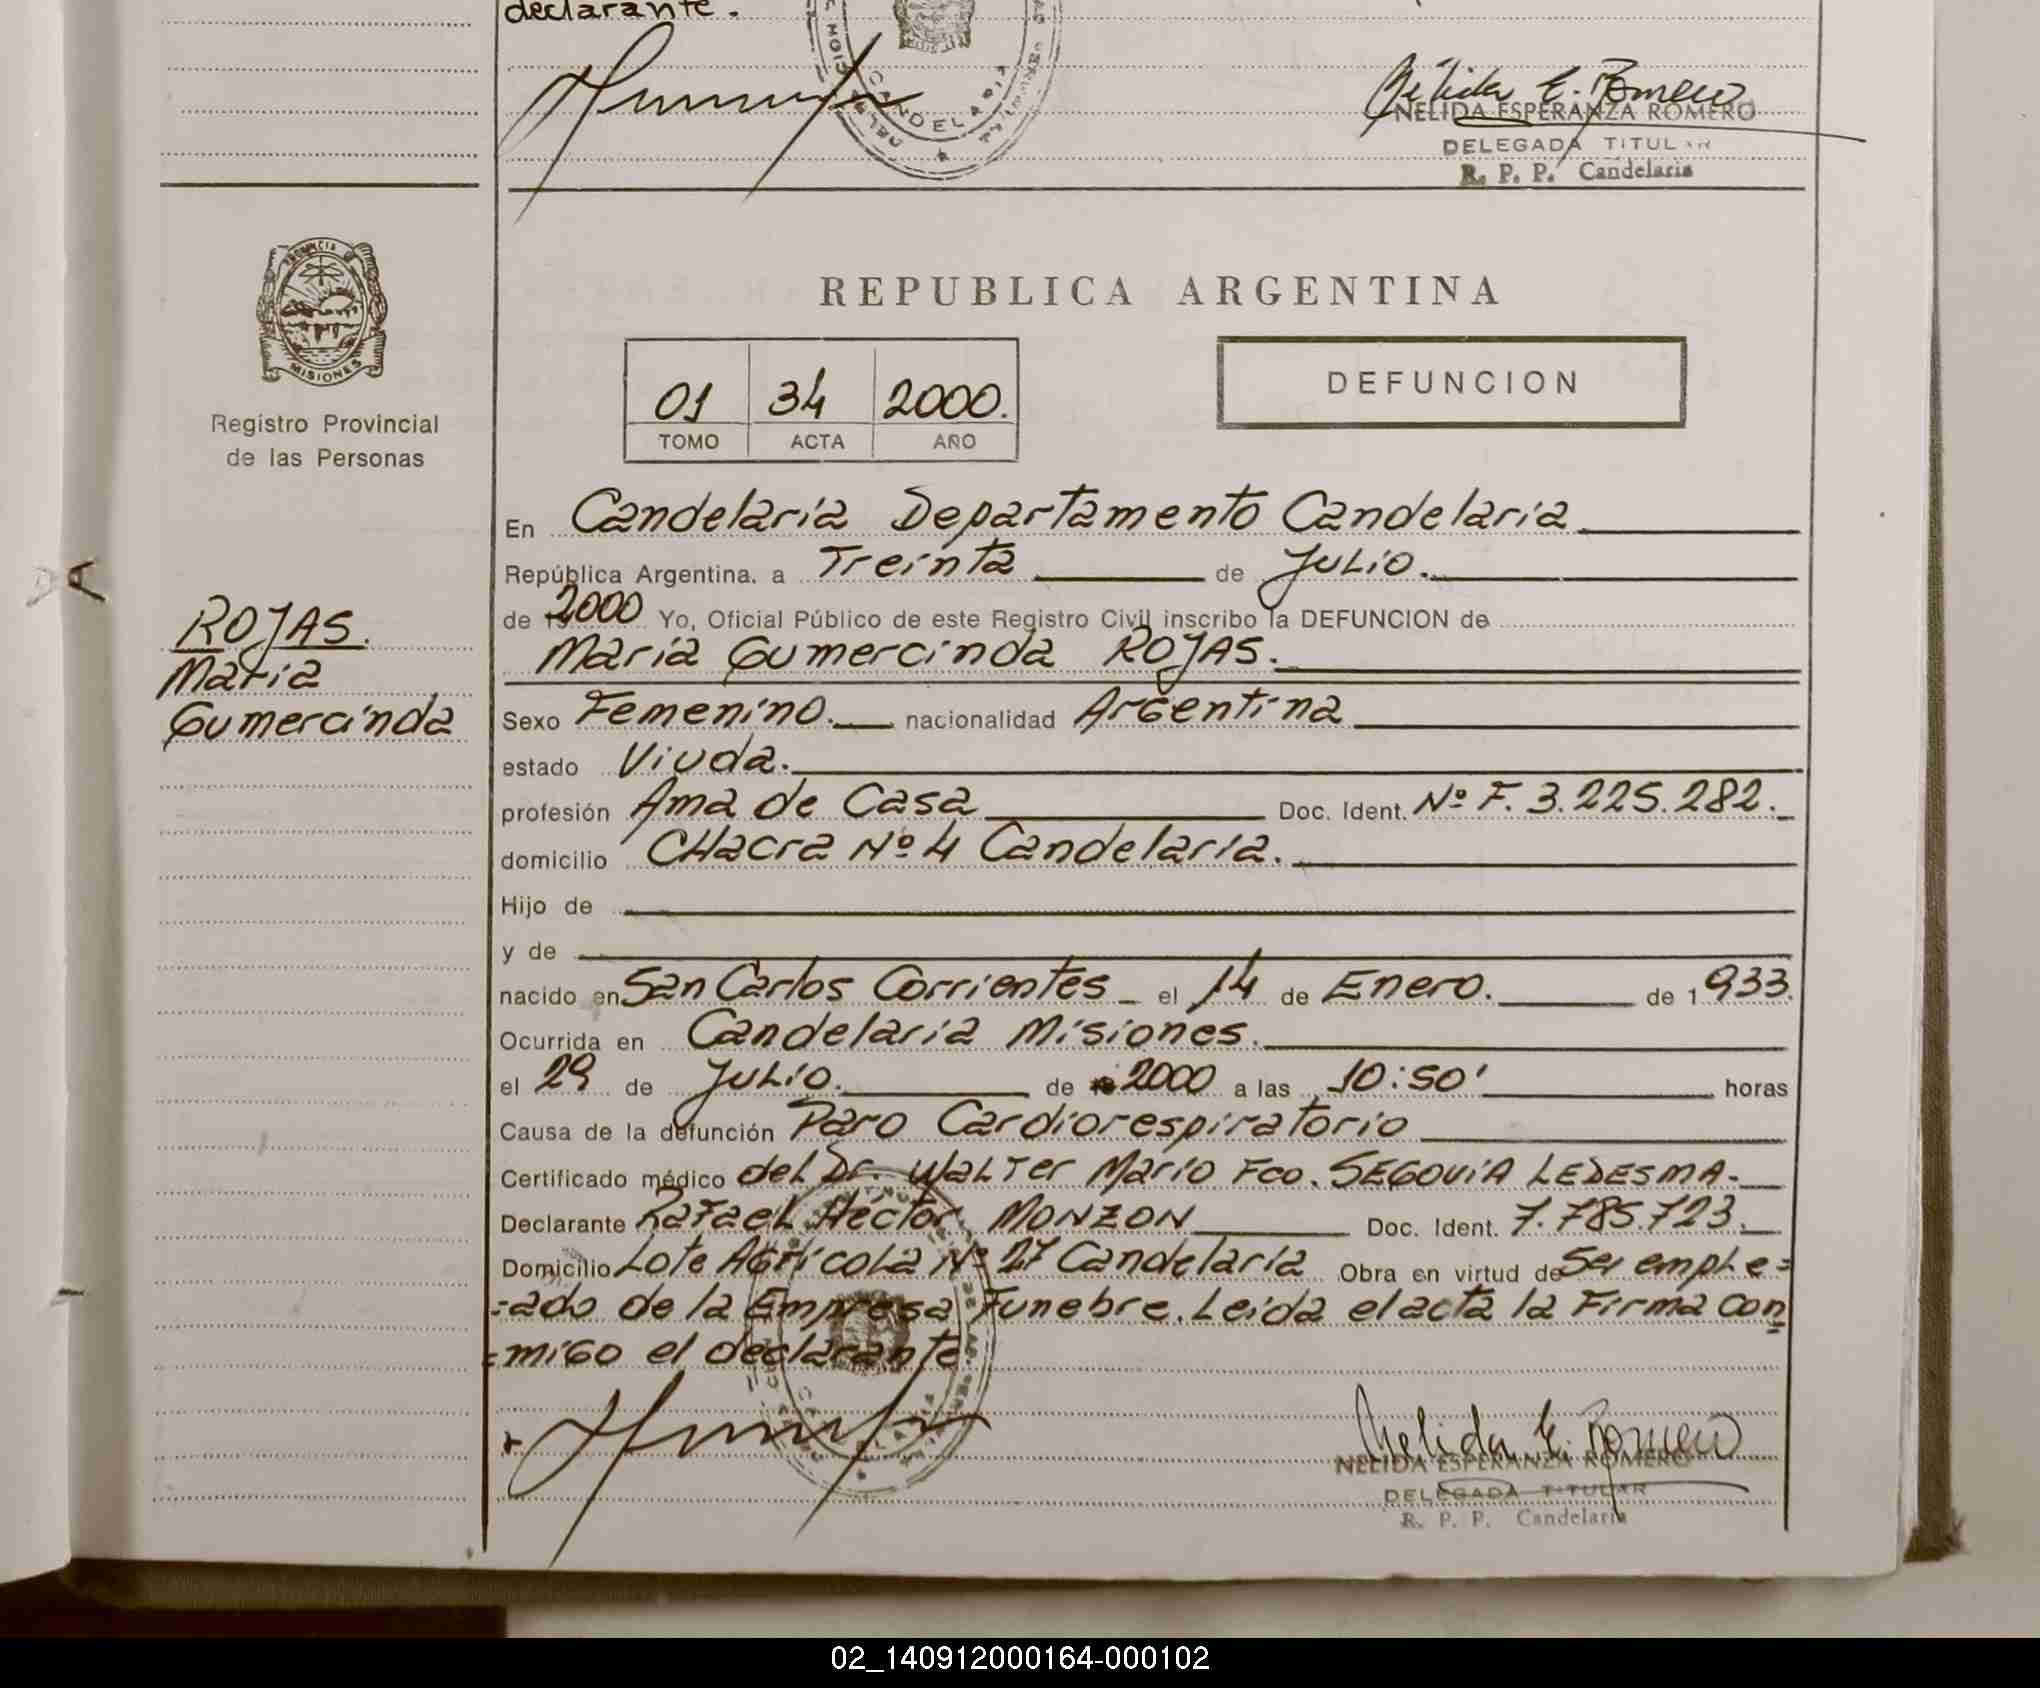 declarante.
CANDELARIA
Nélida E. Romero
NELIDA ESPERANZA ROMERO
DELEGADA TITULAR
R. P. P. Candelaria
PROVINCIA
MISIONES
Registro Provincial
de las Personas
A
ROJAS.
Maria
Gumercinda
REPUBLICA ARGENTINA
01 34 2000.
TOMO ACTA AÑO
DEFUNCION
En Candelaria Departamento Candelaria
República Argentina. a Treinta de Julio.
de 2000 Yo, Oficial Público de este Registro Civil inscribo la DEFUNCION de
Maria Gumercinda ROJAS.
Sexo Femenino. nacionalidad Argentina
estado Viuda.
profesión Ama de Casa Doc. Ident. Nº F. 3.225.282.
domicilio CHacra Nº 4 Candelaria.
Hijo de
y de
nacido en San Carlos Corrientes el 14 de Enero. de 1933.
Ocurrida en Candelaria Misiones.
el 29 de Julio. de 2000 a las 10:50' horas
Causa de la defunción Paro Cardiorespiratorio
Certificado médico del Dr. Walter Mario Fco. SEGOVIA LEDESMA.
Declarante Rafael Hector MONZON Doc. Ident. 7.785.723.
Domicilio Lote Agricola Nº 27 Candelaria Obra en virtud de Ser emple=
=ado de la Empresa Funebre. Leida el acta la Firma con
=migo el declarante
Nelida E. Romero
NELIDA ESPERANZA ROMERO
DELEGADA TITULAR
R. P. P. Candelaria
02_140912000164-000102